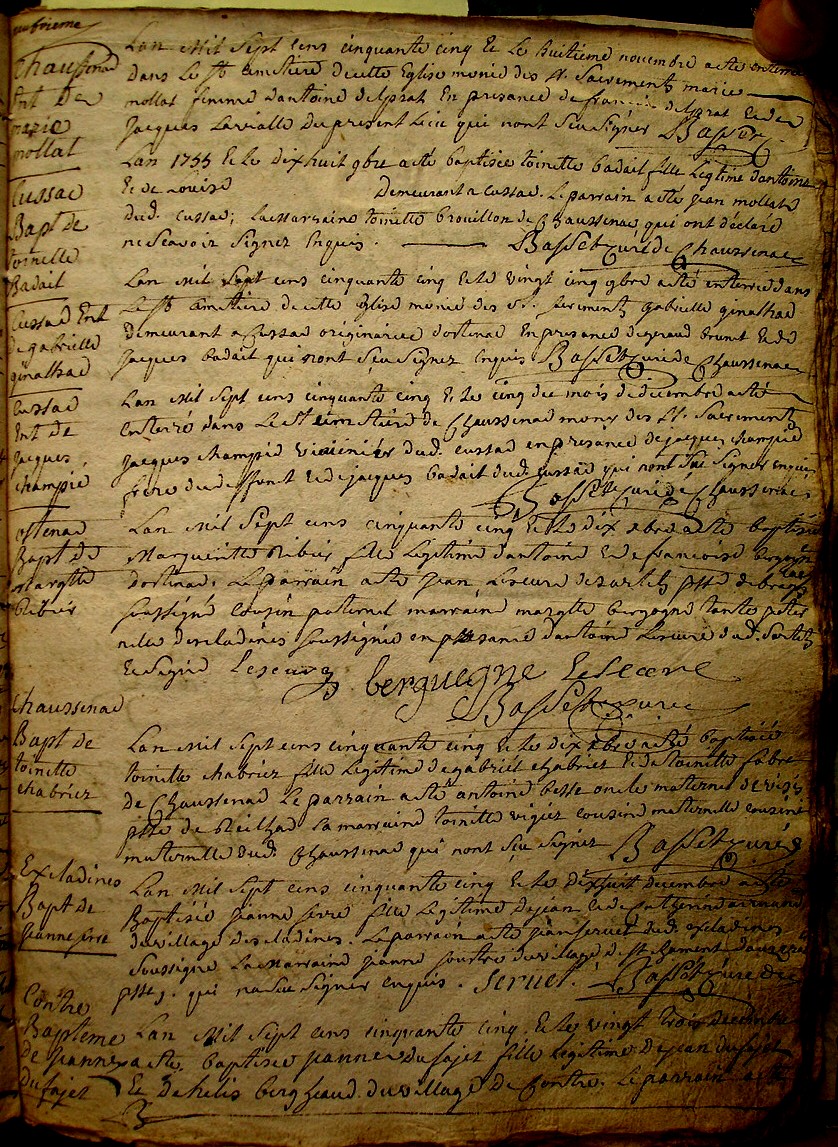 Chaussenac
Ent de
marie
mollat
Lan Mil Sept cens cinquante cinq et Le huitieme novembre a eté enterrée
dans Le St cemetiere de cette Eglise munie des St. Sacrements marie
mollat femme dantoine delprat En presance de francois delprat et de
Jacques Lavialle du present Lieu qui nont seu signer Basset
Cussac
Bapt de
toinette
Badait
Lan 1755 et le dixhuit 9bre a eté baptisée toinette badait fille legitime dantoine
et de Louise demeurant a cussac. Le parrain a eté jean mollat
dud. cussac; La marraine toinette brouillon de Chaussenac, qui ont déclaré
ne scavoir signer Enquis. Basset curé de Chaussenac
Cussac Ent
de gabrielle
ginalhac
Lan Mil Sept cens cinquante cinq et le vingt cinq 9bre a eté enterrée dans
Le St cemetiere de cette Eglise munie des St. sacrements gabrielle ginalhac
demeurant a Cussac originaire dostenac En presance deyraud brunet et de
Jacques badait qui nont seu signer Enquis Basset curé de Chaussenac
Cussac
Ent de
Jacques
champié
Lan Mil Sept cens cinquante cinq et le cinq du mois de decembre a eté
Enterré dans Le St cemetiere de Chaussenac muny des St. Sacrements
Jacques champié dud. cussac en presance de jacques champié
frere du deffunt et de jacques badait dud. cussac qui nont seu signer enquis
Basset curé de Chaussenac
ostenac
Bapt de
Margtte
Ribier
Lan Mil Sept cens cinquante cinq et le dix xbre a eté baptisée
Marguerite Ribier fille Legitime dantoine et de francoise bergogne
dostenac. Le parrain a eté jean Lescure ptre
soussigné cousin paternel marraine margtte bergogne tante pater
nelle descladines soussignée en presance dantoine Lescure dud.
et signé Lescure berguegne Lescure
Basset curé
Chaussenac
Bapt de
toinette
chabrier
Lan Mil Sept cens cinquante cinq et le dix xbre a eté baptisée
toinette chabrier fille Legitime de gabriel chabrier et de toinette fabre
de Chaussenac Le parrain a eté antoine besse oncle maternel
psse de Reilhac La marraine toinette vigier cousine maternelle
maternelle dud. Chaussenac qui nont seu signer Basset curé
Escladines
Bapt de
Jeanne serre
Lan Mil Sept cens cinquante cinq et le dixhuit decembre a eté
Baptisée jeanne serre fille Legitime de jean et de
du village descladines. Le parrain a eté jean servet dud. escladines
soussigné La marraine jeanne du village de St chament
psse. qui na seu signer enquis. Servet. Basset curé
Contre
Bapteme
de jeanne
Dufajet
Lan Mil Sept cens cinquante cinq. et le vingt trois decembre
a eté baptisée jeanne dufajet fille legitime de jean dufajet
et de helis bergheaud du village de Contre. Le parrain a eté